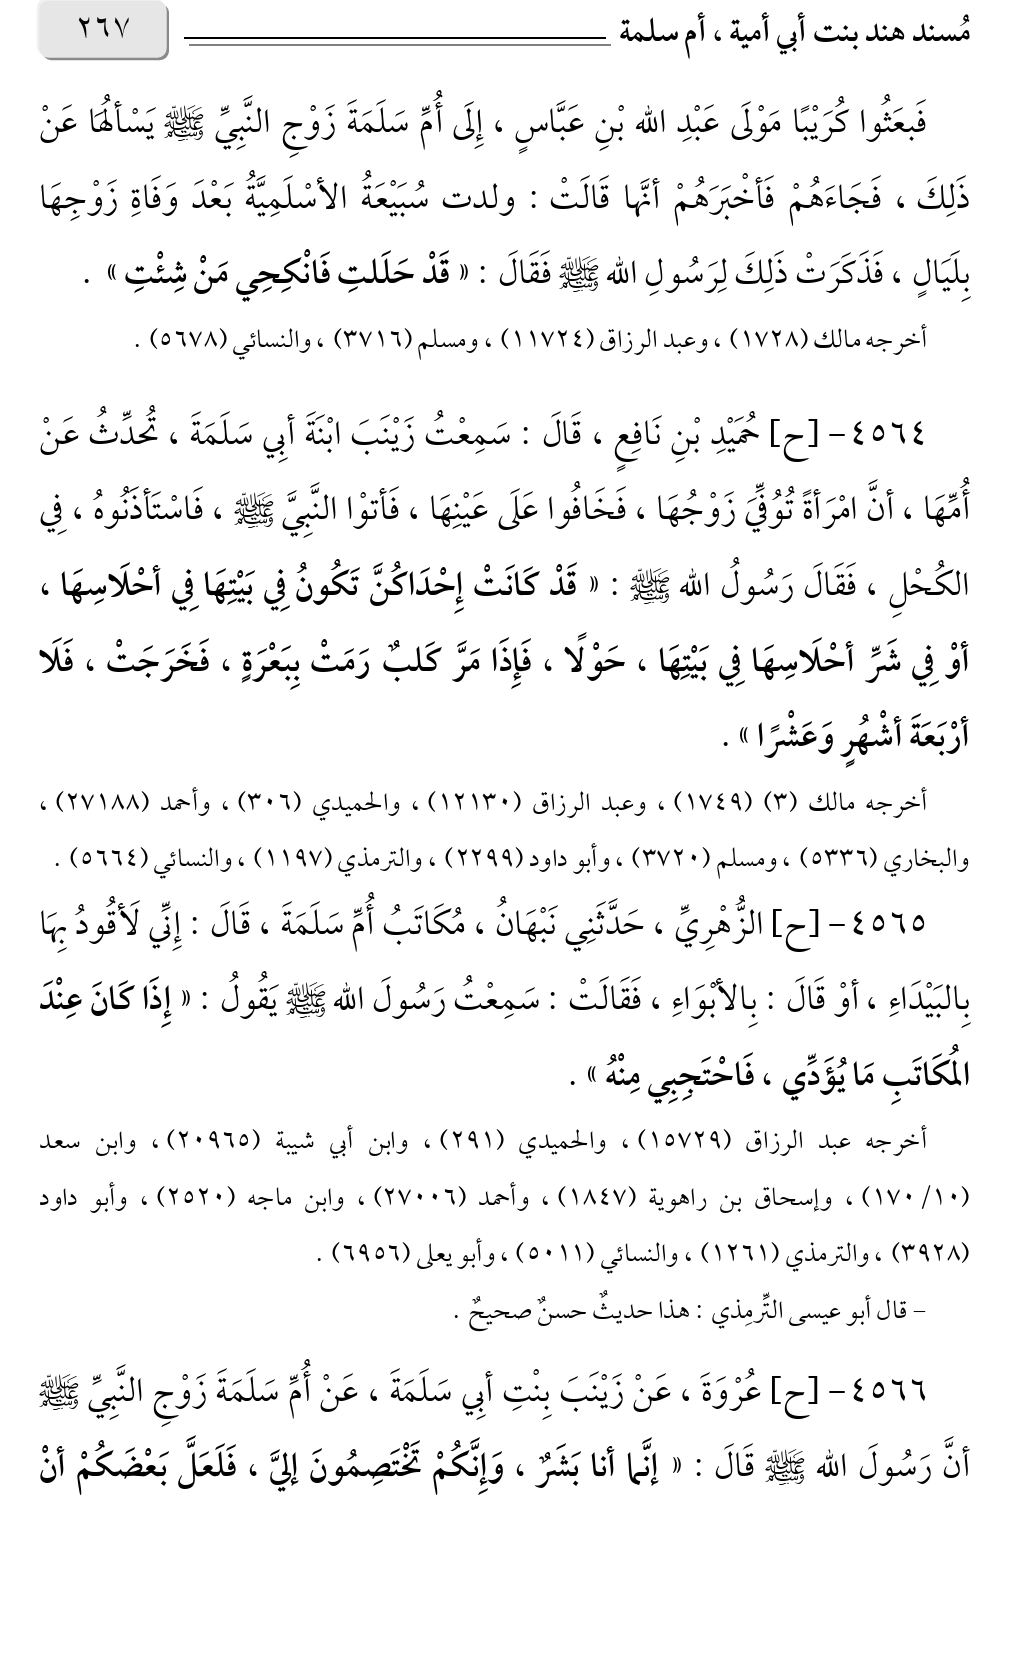 مُسند هند بنت أبي أمية ، أم سلمة ٢٦٧
فَبعَثُوا كُرَيْبًا مَوْلَى عَبْدِ الله بْنِ عَبَّاسٍ ، إِلَى أُمِّ سَلَمَةَ زَوْجِ النَّبِيِّ ﷺ يَسْألهَُا عَنْ
ذَلِكَ ، فَجَاءَهُمْ فَأخْبَرَهُمْ أنَّها قَالَتْ : ولدت سُبَيْعَةُ الأسْلَمِيَّةُ بَعْدَ وَفَاةِ زَوْجِهَا
بِلَيَالٍ ، فَذَكَرَتْ ذَلِكَ لِرَسُولِ الله ﷺ فَقَالَ : « قَدْ حَلَلتِ فَانْكِحِي مَنْ شِئْتِ » .
أخرجه مالك (١٧٢٨) ، وعبد الرزاق (١١٧٢٤) ، ومسلم (٣٧١٦) ، والنسائي (٥٦٧٨) .
٤٥٦٤- [ح] حُمَيْدِ بْنِ نَافِعٍ ، قَالَ : سَمِعْتُ زَيْنَبَ ابْنَةَ أبِي سَلَمَةَ ، تُحدِّثُ عَنْ
أُمِّهَا ، أنَّ امْرَأةً تُوُفِّيَ زَوْجُهَا ، فَخَافُوا عَلَى عَيْنِهَا ، فَأتوْا النَّبِيَّ ﷺ ، فَاسْتَأذَنُوهُ ، فِي
الكُحْلِ ، فَقَالَ رَسُولُ الله ﷺ : « قَدْ كَانَتْ إِحْدَاكُنَّ تَكُونُ فِي بَيْتِهَا فِي أحْلَاسِهَا ،
أوْ فِي شَرِّ أحْلَاسِهَا فِي بَيْتِهَا ، حَوْلًا ، فَإِذَا مَرَّ كَلبٌ رَمَتْ بِبَعْرَةٍ ، فَخَرَجَتْ ، فَلَا
أرْبَعَةَ أشْهُرٍ وَعَشْرًا » .
أخرجه مالك (٣) (١٧٤٩) ، وعبد الرزاق (١٢١٣٠) ، والحميدي (٣٠٦) ، وأحمد (٢٧١٨٨) ،
والبخاري (٥٣٣٦) ، ومسلم (٣٧٢٠) ، وأبو داود (٢٢٩٩) ، والترمذي (١١٩٧) ، والنسائي (٥٦٦٤) .
٤٥٦٥- [ح] الزُّهْرِيِّ ، حَدَّثَنِي نَبْهَانُ ، مُكَاتَبُ أُمِّ سَلَمَةَ ، قَالَ : إِنِّي لَأقُودُ بِهَا
بِالبَيْدَاءِ ، أوْ قَالَ : بِالأبْوَاءِ ، فَقَالَتْ : سَمِعْتُ رَسُولَ الله ﷺ يَقُولُ : « إِذَا كَانَ عِنْدَ
المُكَاتَبِ مَا يُؤَدِّي ، فَاحْتَجِبِي مِنْهُ » .
أخرجه عبد الرزاق (١٥٧٢٩) ، والحميدي (٢٩١) ، وابن أبي شيبة (٢٠٩٦٥) ، وابن سعد
(١٠/ ١٧٠) ، وإسحاق بن راهوية (١٨٤٧) ، وأحمد (٢٧٠٠٦) ، وابن ماجه (٢٥٢٠) ، وأبو داود
(٣٩٢٨) ، والترمذي (١٢٦١) ، والنسائي (٥٠١١) ، وأبو يعلى (٦٩٥٦) .
- قال أبو عيسى التِّرمِذي : هذا حديثٌ حسنٌ صحيحٌ .
٤٥٦٦- [ح] عُرْوَةَ ، عَنْ زَيْنَبَ بِنْتِ أبِي سَلَمَةَ ، عَنْ أُمِّ سَلَمَةَ زَوْجِ النَّبِيِّ ﷺ
أنَّ رَسُولَ الله ﷺ قَالَ : « إنَّما أنا بَشَرٌ ، وَإِنَّكُمْ تَخْتَصِمُونَ إليَّ ، فَلَعَلَّ بَعْضَكُمْ أنْ